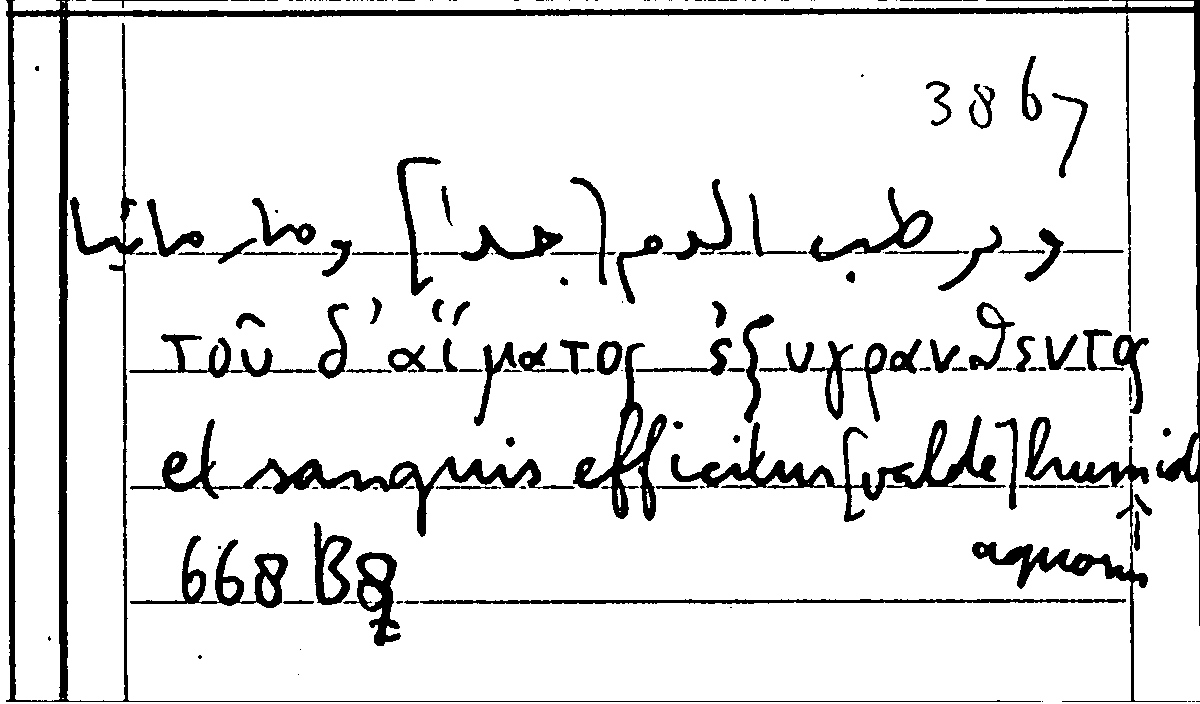 3867
ويرطب الدم [جدا] وصار مائيا
τοῦ δ' αἵματος ἐξυγρανθεντος
et sanguis efficitur [valde] humid
↑
aquosus
668 B8